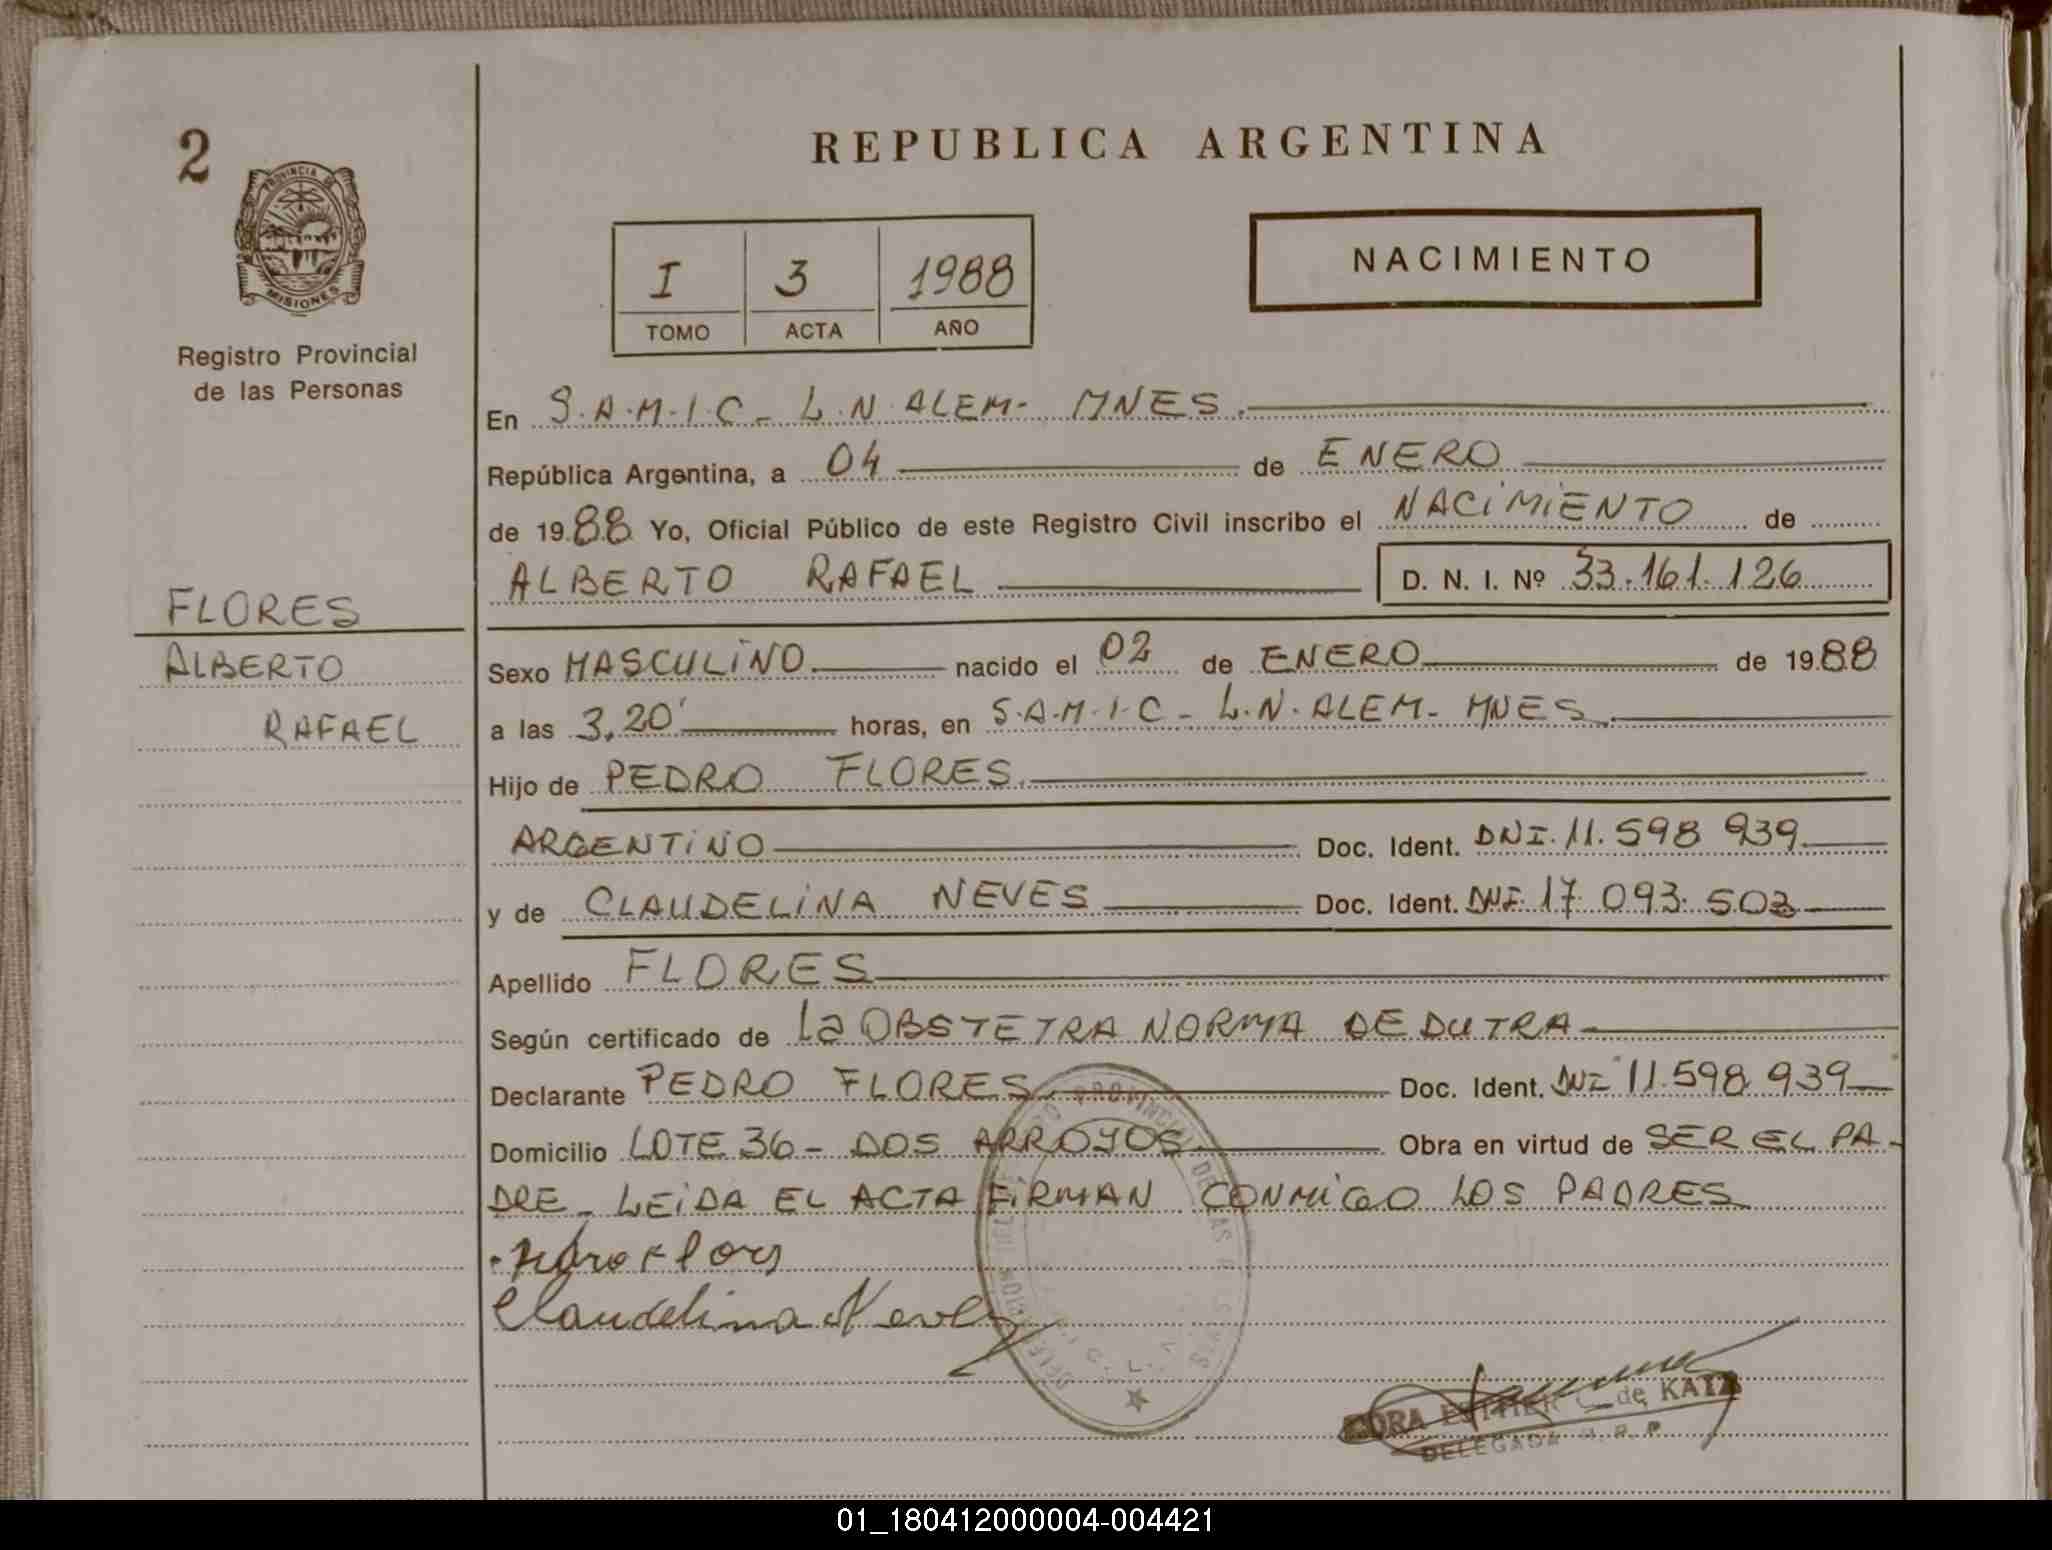 2
PROVINCIA DE
MISIONES
Registro Provincial
de las Personas
FLORES
ALBERTO
RAFAEL
REPUBLICA ARGENTINA
I 3 1988
TOMO ACTA AÑO
NACIMIENTO
En S.A.M.I.C - L.N. ALEM - MNES.
República Argentina, a 04 de ENERO
de 1988 Yo, Oficial Público de este Registro Civil inscribo el NACIMIENTO de
ALBERTO RAFAEL D. N. I. Nº 33.161.126
Sexo MASCULINO nacido el 02 de ENERO de 1988
a las 3,20' horas, en S.A.M.I.C - L.N. ALEM - MNES.
Hijo de PEDRO FLORES.
ARGENTINO Doc. Ident. DNI. 11.598 939
y de CLAUDELINA NEVES Doc. Ident. DNI. 17.093.503
Apellido FLORES
Según certificado de La OBSTETRA NORMA DE DUTRA
Declarante PEDRO FLORES Doc. Ident. DNI 11.598.939
Domicilio LOTE 36 - DOS ARROYOS Obra en virtud de SER EL PA-
DRE - LEIDA EL ACTA FIRMAN CONMIGO LOS PADRES
Claudelina Neves
de KATZ
DELEGADA R. P. P.
01_180412000004-004421